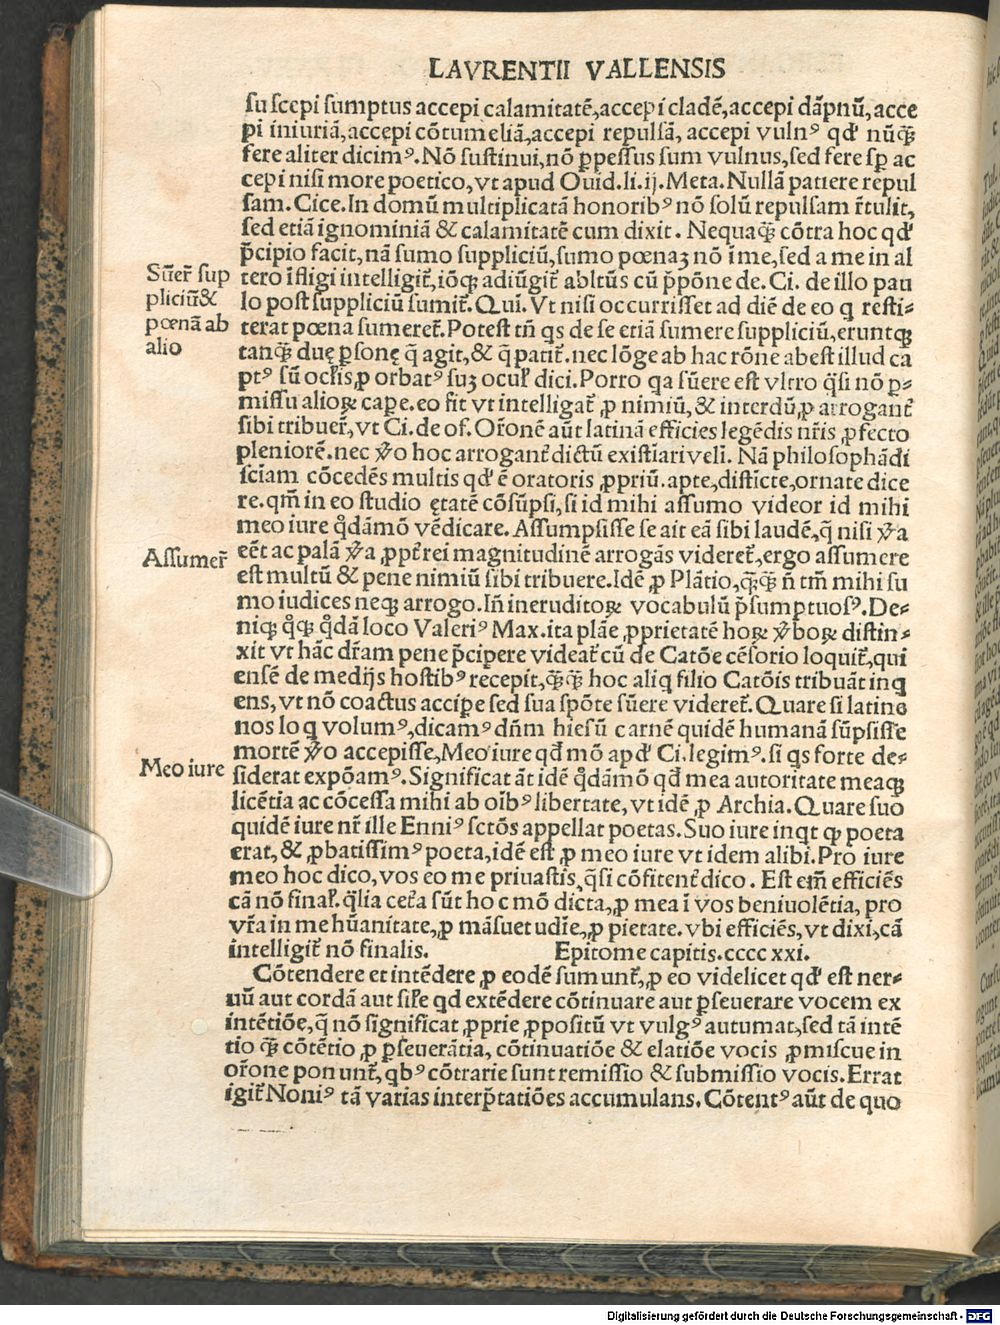 LAVRENTII VALLENSIS
su scepi sumptus accepi calamitatē,accepi cladē,accepi dāpnū,acce
pi iniuriā,accepi cōtumeliā,accepi repulsā, accepi vulnꝰ qd' nūqꝫ
fere aliter dicimꝰ.Nō sustinui,nō ꝑpessus sum vulnus,sed fere sꝑ ac
cepi nisi more poetico,vt apud Ouid.li.ij.Meta.Nullā patiere repul
sam.Cice.In domū multiplicatā honoribꝰ nō solū repulsam r̄tulit,
sed etiā ignominiā & calamitatē cum dixit. Nequaqꝫ cōtra hoc qd'
p̄cipio facit,nā sumo suppliciū,sumo pœnaꝫ nō ī me,sed a me in al
Sūer̄ sup
pliciū&
pœnā ab
alio
tero īfligi intelligit̄,iōqꝫ adiūgit̄ abltūs cū p̄pōne de.Ci.de illo pau
lo post suppliciū sumit̄.Qui.Vt nisi occurrisset ad diē de eo q resti-
terat pœna sumeret̄.Potest tn̄ qs de se etiā sumere suppliciū,eruntqꝫ
tanqꝫ̄ duę ꝑsonę q̄ agit,& q̄ patit̄.nec lōge ab hac rōne abest illud ca
ptꝰ sū ocl'is,ꝓ orbatꝰ suꝫ ocul' dici.Porro qa sūere est vltro q̄si nō ꝑ-
missu alioꝝ capere.eo fit vt intelligat̄ ꝓ nimiū,& interdū,ꝓ arrogant̄
sibi tribuer̄,vt Ci.de of.Or̄onē aūt latinā efficies legēdis nr̄is ꝓfecto
pleniorē.nec v̄o hoc arrogant̄ dictū existīari veli. Nā philosophādi
sciam cōcedēs multis qd' ē oratoris ꝓpriū.apte,disticte,ornate dice
re.qm̄ in eo studio ętatē cōsūpsi,si id mihi assumo videor id mihi
meo iure q̊dāmō vēdicare.Assumpsisse se ait eā sibi laudē,q̄ nisi v̄a
Assumer̄
eēt ac palā v̄a ꝓpt̄ rei magnitudinē arrogās videret̄,ergo assumere
est multū & pene nimiū sibi tribuere.Idē ꝓ Plātio,qꝫ̄qꝫ̄ n̄ tm̄ mihi su
mo iudices neqꝫ arrogo.Iñ ineruditoꝝ vocabulū p̄sumptuosꝰ.De-
niqꝫ q̊qꝫ q̊dā loco Valeriꝰ Max.ita plāe ꝓprietatē hoꝝ v̄boꝝ distin-
xit vt hāc dr̄am pene p̄cipere videat̄ cū de Catōe cēsorio loquit̄,qui
ensē de medijs hostibꝰ recepit,qꝫ̄qꝫ̄ hoc aliq filio Catōis tribuāt inq
ens, vt nō coactus accipe sed sua spōte sūere videret̄. Quare si latine
nos loq volumꝰ,dicamꝰ dn̄m hiesū carnē quidē humanā sūpsisse
mortē v̄o accepisse,Meo iure qd̄ mō apd' Ci.legimꝰ.si qs forte de-
Meo iure
siderat expōamꝰ.Significat āt idē q̊dāmō qd̄ mea autoritate meaqꝫ
licētia ac cōcessa mihi ab oībꝰ libertate, vt idē ꝓ Archia. Quare suo
quidē iure nr̄ ille Enniꝰ sctōs appellat poetas.Suo iure inqt qꝫ poeta
erat,& ꝓbatissimꝰ poeta,idē est ꝓ meo iure vt idem alibi.Pro iure
meo hoc dico,vos eo me priuastis,q̄si cōfitent̄ dico. Est em̄ efficiēs
cā nō final'.q̄lia cet̄a sūt ho c mō dicta,ꝓ mea ī vos beniuolētia, pro
vr̄a in me hūanitate,ꝓ māsuet udīe,ꝓ pietate.vbi efficiēs,vt dixi,cā
intelligit̄ nō finalis. Epitome capitis.cccc xxi.
Cōtendere et intēdere ꝓ eodē sum unt̄,ꝓ eo videlicet qd' est ner-
uū aut cordā aut sil'e qd extēdere cōtinuare aut ꝑseuerare vocem ex
intētiōe,q̄ nō significat ꝓprie ꝓpositū vt vulgꝰ autumat,sed tā intē
tio qꝫ̄ cōtētio ꝓ ꝑseuerātia, cōtinuatiōe & elatiōe vocis ꝓmiscue in
or̄one pon unt̄,qbꝰ cōtrarie sunt remissio & submissio vocis.Errat
igit̄ Noniꝰ tā varias interp̄tatiōes accumulans.Cōtentꝰ aūt de quo
Digitalisierung gefördert durch die Deutsche Forschungsgemeinschaft - DFG